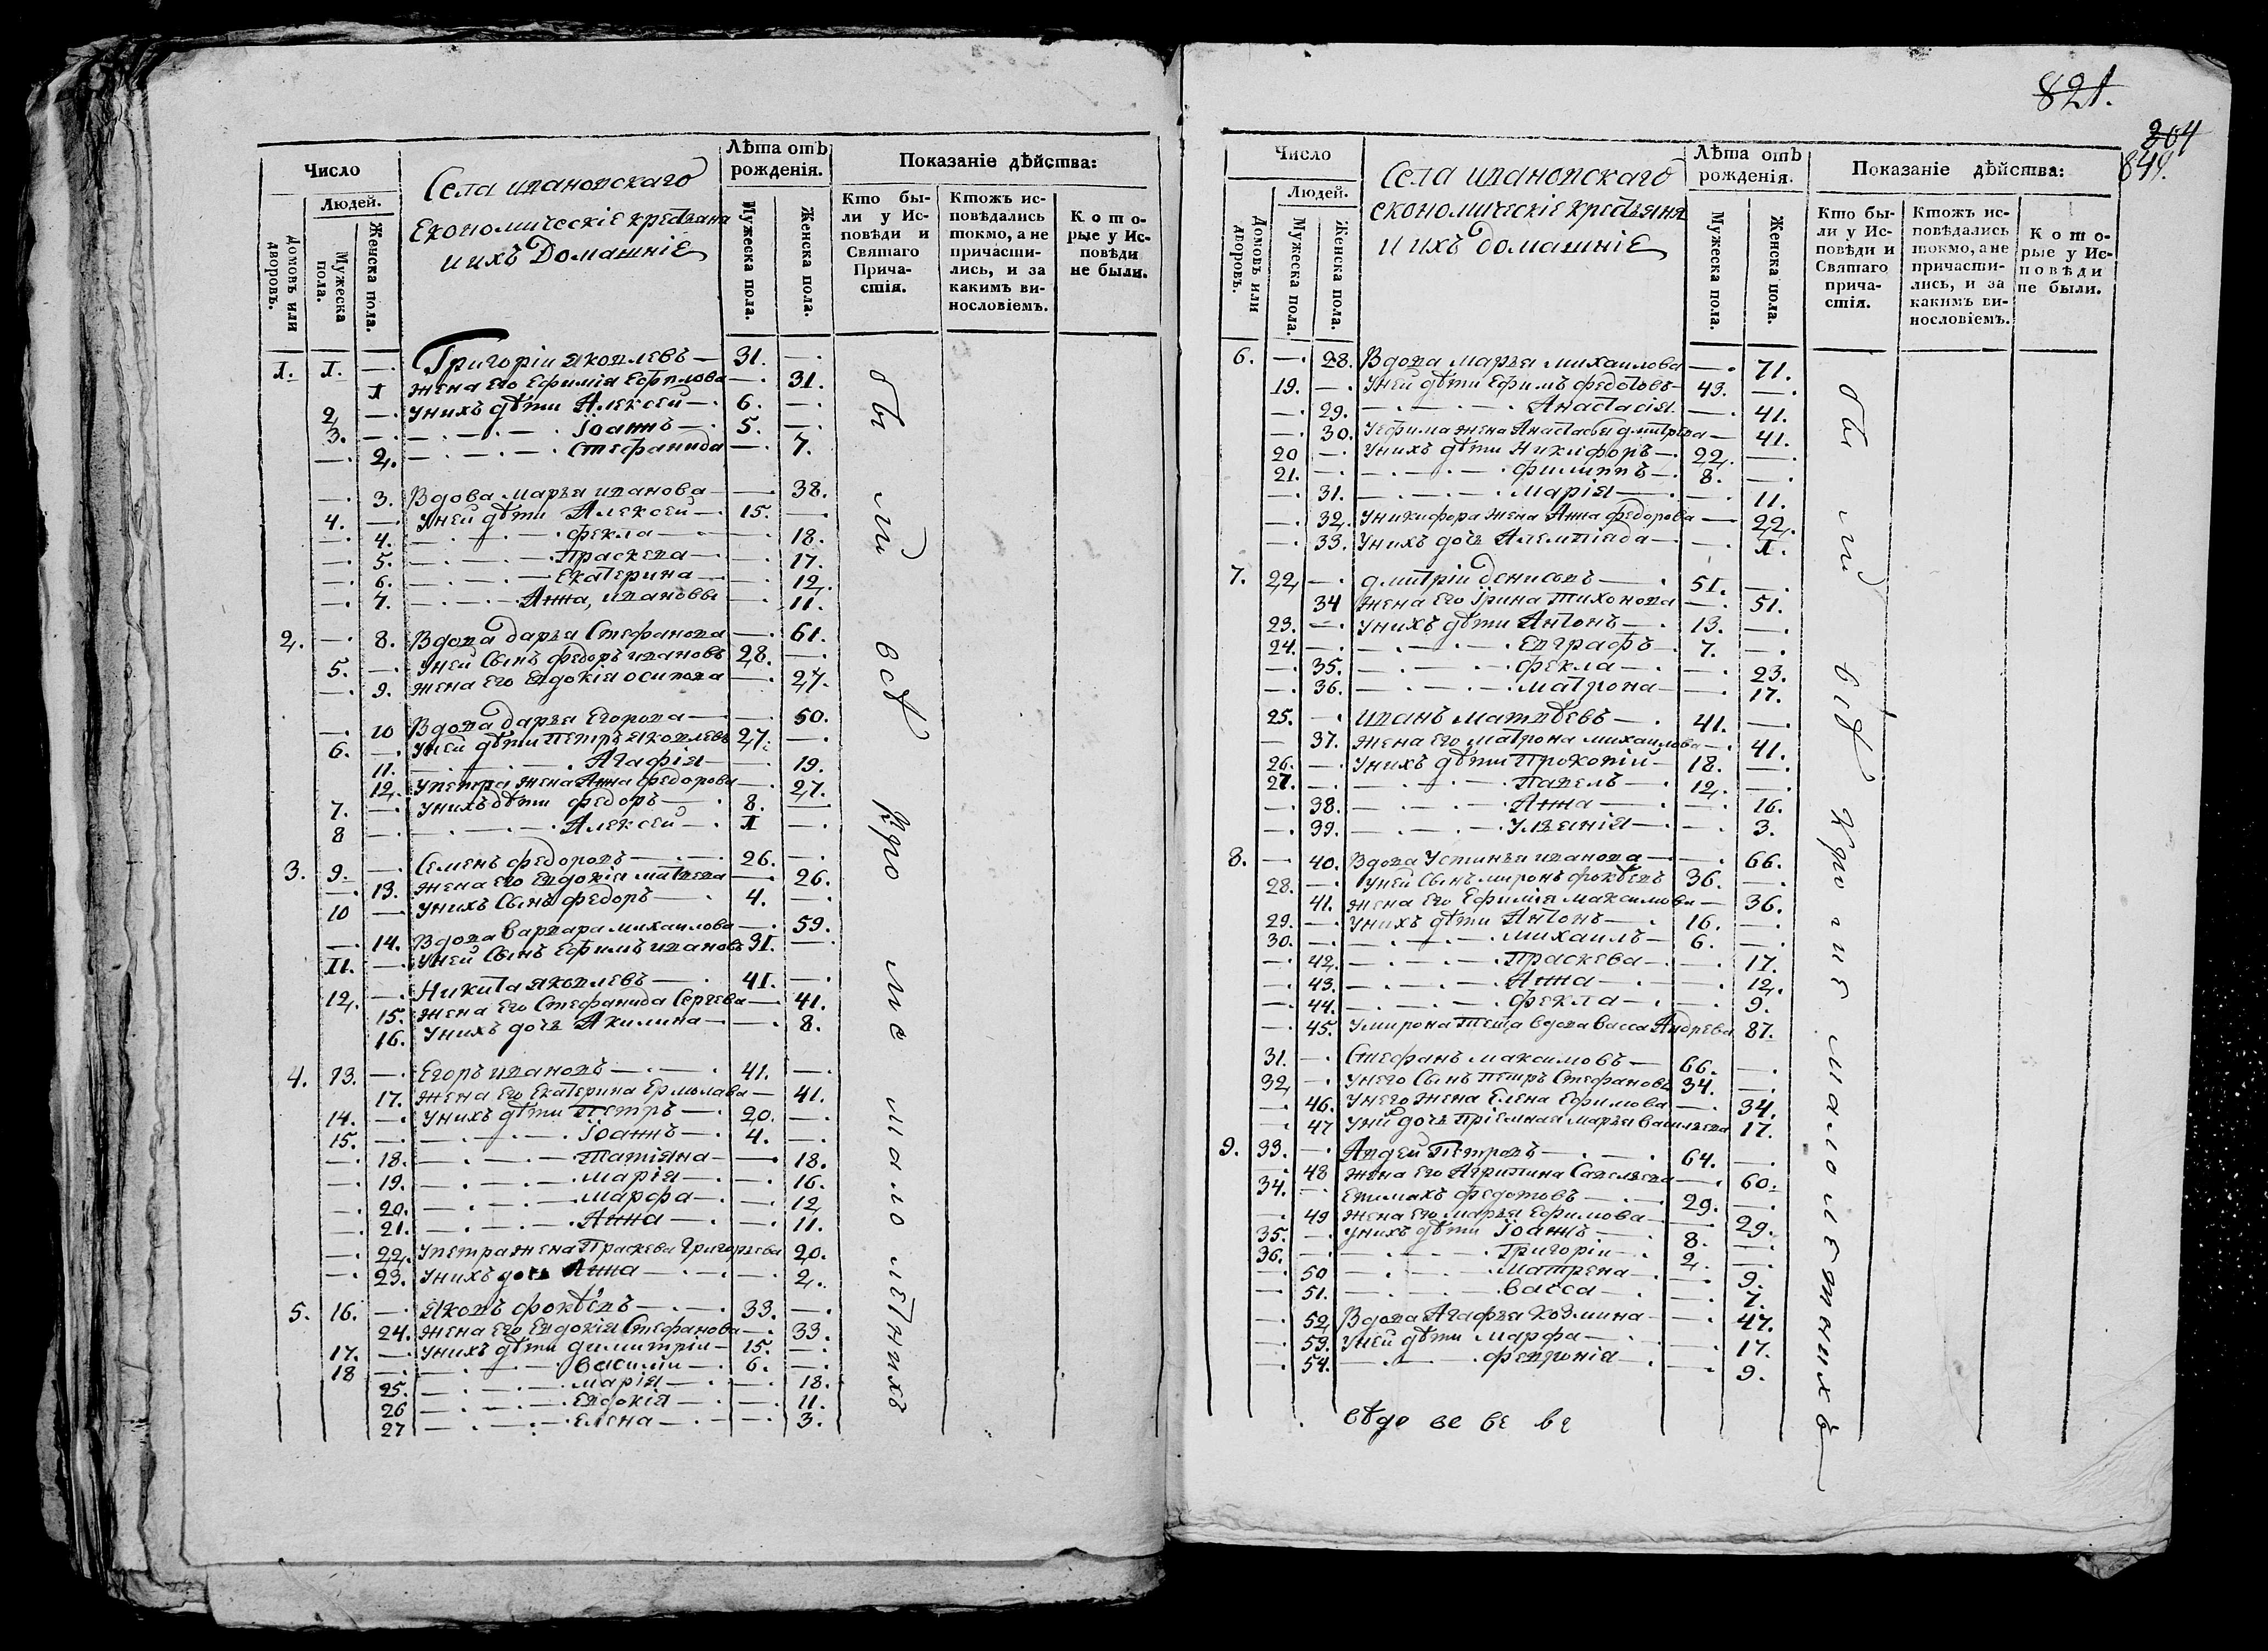 Число
Людей.
Домовъ или дворовъ.
Мужеска пола.
Женска пола.
Села ивановскаго
Економическіе крестьяна
и ихъ Домашніе
Лѣта отъ рожденія.
Мужеска пола.
Женска пола.
Показаніе дѣйства:
Кто были у Исповѣди и Святаго Причастія.
Ктожъ исповѣдались токмо, а не причастились, и за какимъ винословіемъ.
Которые у Исповѣди не были.
1. 1. —. Григоріи яковлевъ — 31. —.
1 жена его Ефимія —. 31.
2. —. Унихъ дѣти Алексей —. 6. —.
3. —. —.—.—. Іоаннъ —. 5. —.
—. 2. —.—.—. Стефанида —. 7.
—. 3. Вдова марья иванова —. 38.
4. —. Уней дѣти Алексей —. 15. —.
—. 4. —.—.—. фекла —. 18.
—. 5. —.—.—. Праскева —. 17.
—. 6. —.—.—. Екатерина —. 12.
—. 7. —.—.—. Анна, ивановы —. 11.
2. —. 8. Вдова дарья Стефанова —. 61.
5. —. Уней Сынъ федоръ ивановъ 28. —.
—. 9. жена его Евдокія осипова —. 27.
—. 10 Вдова дарья Егорова —. 50.
6. —. Уней дѣти Петръ яковлевъ 27. —.
11. —.—.—. Агафія —. 19.
12. Упетра жена Анна федорова —. 27.
7. —. Унихъ дѣти федоръ —. 8. —.
8 —. —.—.—. Алексей —. 1 —.
3. 9. —. Семенъ федоровъ —. 26. —.
—. 13. жена его Евдокія матвева —. 26.
10 —. Унихъ Сынъ федоръ —. 4. —.
—. 14. Вдова варвара михаилова —. 59.
11. —. Уней Сынъ Ефимъ ивановъ 31. —.
12. —. Никита яковлевъ —. 41. —.
15. жена его Стефанида Сергева —. 41.
16. Унихъ дочь Акилина —. 8.
4. 13. —. Егоръ ивановъ —. 41. —.
17. жена его Екатерина Ермолава — 41.
14. —. Унихъ дѣти Петръ —. 20. —.
15. —. —.—.—. Іоаннъ —. 4. —.
—. 18. —.—.—. Татіяна —. 18.
—. 19. —.—.—. марія —. 16.
—. 20. —.—.—. марфа —. 12.
—. 21. —.—.—. Анна —. 11.
—. 22. Упетра жена Праскева Григорьева 20.
—. 23. Унихъ дочь Анна —. 2.
5. 16. —. Яковъ фокѣевъ —. 33. —.
24. жена его Евдокія Стефанова —. 33.
17. —. Унихъ дѣти димитріи — 15. —.
18 —. —.—.—. василіи —. 6. —.
25. —.—.—. марія —. 18.
26 —.—.—. Евдокія —. 11.
27 —.—.—. Елена —. 3.
были всѣ кроме малолетнихъ
821.
264
849.
Число
Людей.
Домовъ или дворовъ.
Мужеска пола.
Женска пола.
Села ивановскаго
економическіе крестьяня
и ихъ домашніе
Лѣта отъ рожденія.
Мужеска пола.
Женска пола.
Показаніе дѣйства:
Кто были у Исповѣди и Святаго причастія.
Ктожъ исповѣдались токмо, а не причастились, и за какимъ винословіемъ.
Которые у Исповѣди не были.
6. —. 28. Вдова марья михаилова —. 71.
19. —. Уней дѣти Ефимъ федотовъ — 43. —.
—. 29. —.—.—. Анастасія —. 41.
—. 30. Уефима жена Анастасья дмитрева — 41.
20 —. Унихъ дѣти Никифоръ —. 22. —.
21. —. —.—.—. филиппъ —. 8. —.
—. 31. —.—.—. марія —. 11.
—. 32. Уникифора жена Анна федорова — 22.
—. 33. Унихъ дочь Алемпіяда —. 1.
7. 22. —. дмитріи денисовъ —. 51. —.
34 жена его Ірина тихонова —. 51.
23. —. Унихъ дѣти Антонъ —. 13. —.
24. —. —.—.—. Евграфъ —. 7. —.
—. 35. —.—.—. фекла —. 23.
—. 36. —.—.—. матрона —. 17.
25. —. иванъ матвѣевъ —. 41. —.
— 37. жена его матрона михаилова —. 41.
26. —. Унихъ дѣти Прокопіи — 18. —.
27. —. —.—.—. Павелъ —. 12. —.
—. 38. —.—.—. Анна —. 16.
—. 39. —.—.—. Ульянія —. 3.
8. —. 40. Вдова Устинья иванова —. 66.
28. —. Уней Сынъ миронъ фокѣевъ 36. —.
41. жена его Ефимія максимова — 36.
29. —. Унихъ дѣти Антонъ —. 16. —.
30. —. —.—.—. михаилъ — 6. —.
—. 42. —.—.—. Праскева —. 17.
—. 43. —.—.—. Анна —. 12.
—. 44. —.—.—. фекла —. 9.
—. 45. Умирона теща вдова васса Андрева 87.
31. —. Стефанъ максимовъ — 66. —.
32 —. Унего Сынъ петръ Стефановъ 34. —.
—. 46. Унего жена Елена Ефимова —. 34.
—. 47 Уних дочь пріемная марья васильева 17.
9. 33. —. Авдей Петровъ —. 64. —.
—. 48 жена его Агрипина Савельева —. 60.
34. —. Епимахъ федотовъ —. 29. —.
—. 49 жена его марья Ефимова — 29.
35. —. Унихъ дѣти Іоаннъ —. 8. —.
36. —. —.—.—. Григоріи —. 2. —.
—. 50 —.—.—. матрена —. 9.
—. 51. —.—.—. васса —. 7.
—. 52 Вдова Агафья козмина —. 47.
—. 53. Уней дѣти марфа —. 17.
—. 54. —.—.—. февронія —. 9.
были всѣ кроме малолетнихъ
вѣдо ве ве ве